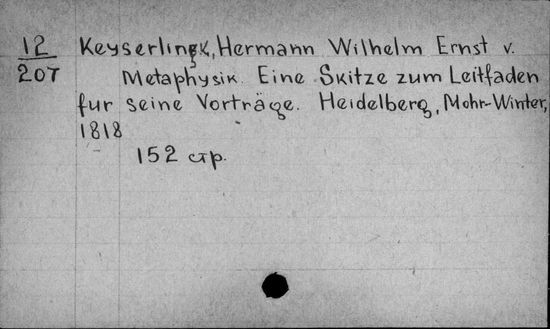 12
207
Keyserlingk, Hermann Wilhelm Ernst v.
Metaphysik. Eine Skitze zum Leitfaden
fur seine Vorträge. Heidelberg, Mohr-Winter,
1818
152 стр.